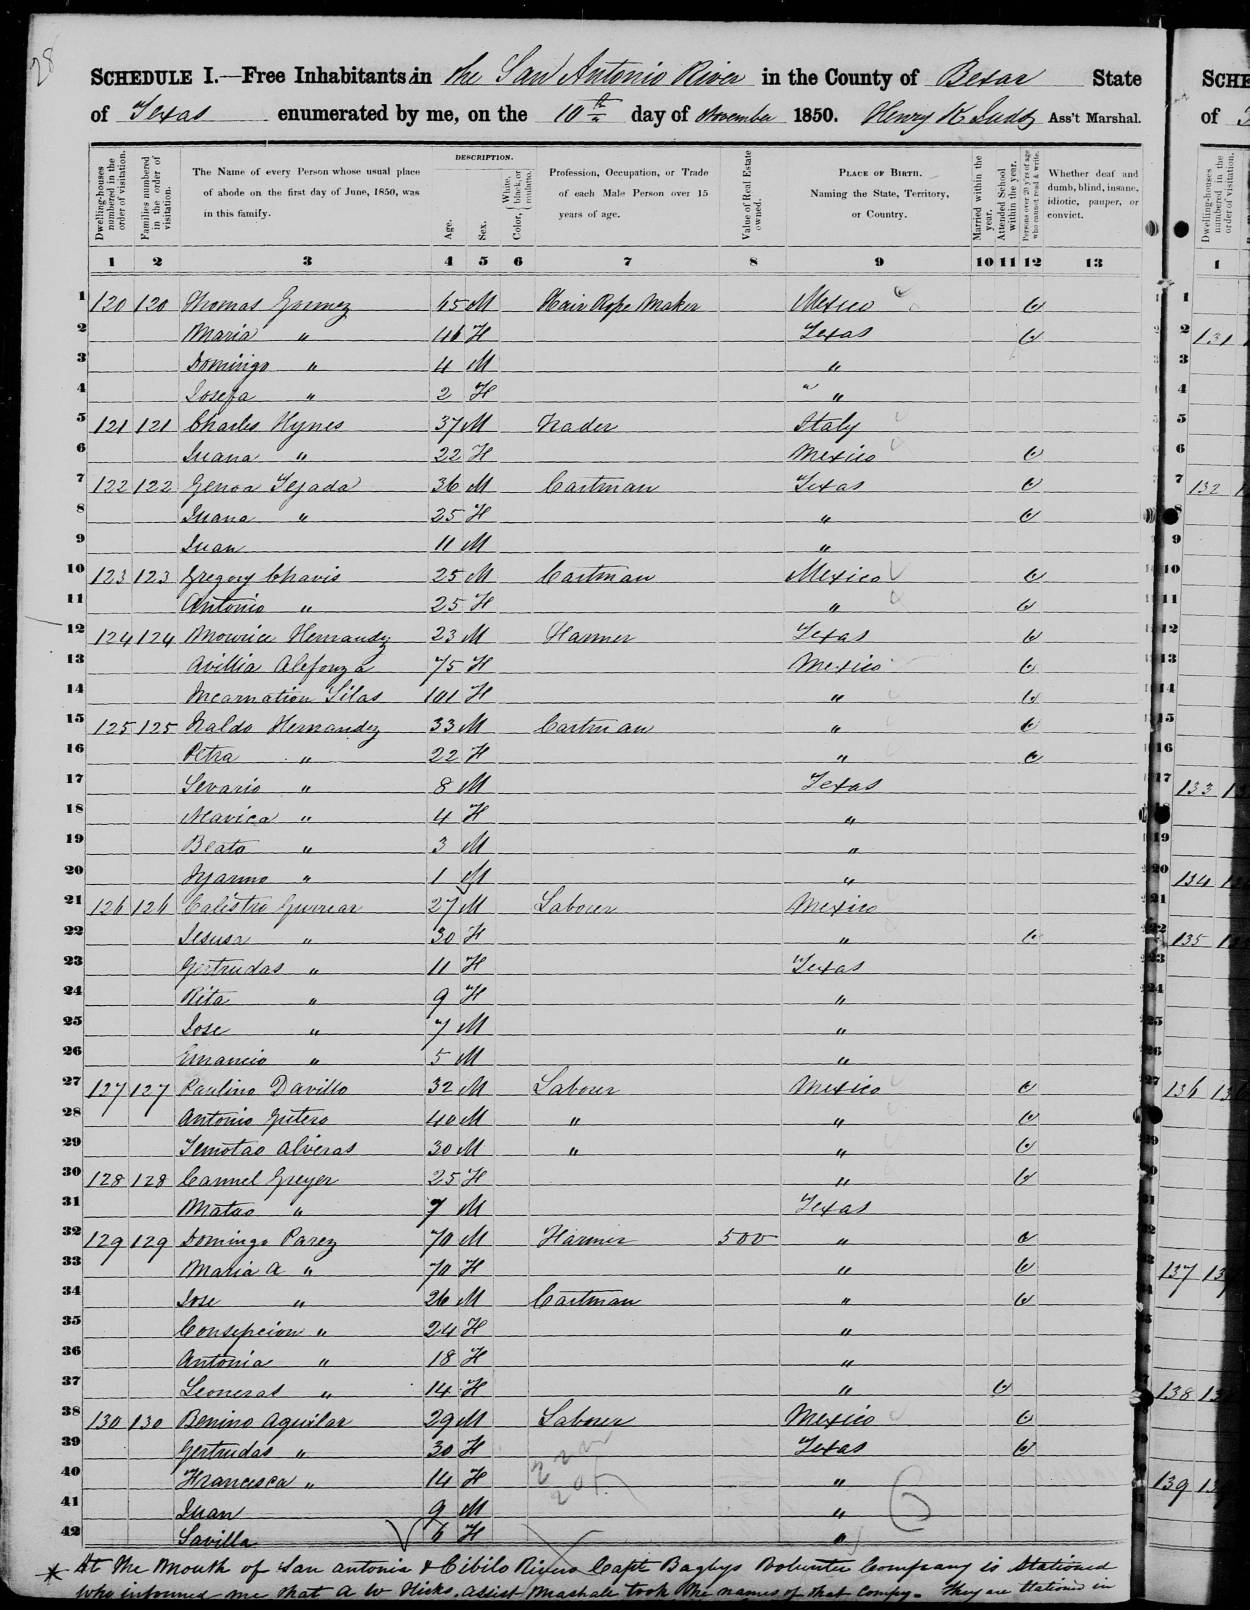 28
SCHEDULE I.—Free Inhabitants in the San Antonio River in the County of Bexar State
of Texas enumerated by me, on the 10th day of November 1850. Henry K Judd Ass't Marshal.
Dwelling-houses numbered in the order of visitation.
Families numbered in the order of visitation.
The Name of every Person whose usual place of abode on the first day of June, 1850, was in this family.
DESCRIPTION.
Age.
Sex.
Color, White, black, or mulatto.
Profession, Occupation, or Trade of each Male Person over 15 years of age.
Value of Real Estate owned.
PLACE OF BIRTH. Naming the State, Territory, or Country.
Married within the year.
Attended School within the year.
Persons over 20 y'rs of age who cannot read & write.
Whether deaf and dumb, blind, insane, idiotic, pauper, or convict.
1 2 3 4 5 6 7 8 9 10 11 12 13
1 120 120 Thomas Gomez 45 M Hair Rope Maker Mexico
2 Maria " 46 F Texas
3 Domingo " 4 M "
4 Josefa " 2 F "
5 121 121 Charles Hynes 37 M Trader Italy
6 Juana " 22 F Mexico
7 122 122 Genoa Tejada 36 M Cartman Texas
8 Juana " 25 F "
9 Juan 11 M "
10 123 123 Gregory Chavis 25 M Cartman Mexico
11 Antonio " 25 F "
12 124 124 Mowrice Hernandez 23 M Farmer Texas
13 Avillia Alefonza 75 F Mexico
14 Incarnation Silas 101 F "
15 125 125 Naldo Hernandez 33 M Cartman "
16 Petra " 22 F "
17 Sevario " 8 M Texas
18 Mavica " 4 F "
19 Beato " 3 M "
20 " 1 M "
21 126 126 Calistro Gurrear 27 M Laborer Mexico
22 Jesusa " 30 F "
23 Gertrudas " 11 F Texas
24 Rita " 9 F "
25 Jose " 7 M "
26 Emancio " 5 M "
27 127 127 Paulino Davillo 32 M Laborer Mexico
28 Antonio 40 M " "
29 Temotao Alveras 30 M " "
30 128 128 Carmel Greyer 25 F "
31 Mateo " 7 M Texas
32 129 129 Domingo Parez 70 M Farmer 500 "
33 Maria A " 70 F "
34 Jose " 26 M Cartman "
35 Consepcion " 24 F "
36 Antonia " 18 F "
37 Leoneras " 14 F "
38 130 130 Benino Aguilar 29 M Laborer Mexico
39 Gertrudas " 30 F Texas
40 Francesca " 14 F "
41 Juan 9 M "
42 Savilla 6 F "
* At the mouth of San Antonio & Cibilo Rivers Capt Bagbys Volunter Company is stationed
who informed me that A W Hicks. Assist Mashall took the names of that Compy. They are stationed in
SCHE
of
Dwelling-houses numbered in the order of visitation.
1
131
132
133
134
135
136
137
138
139